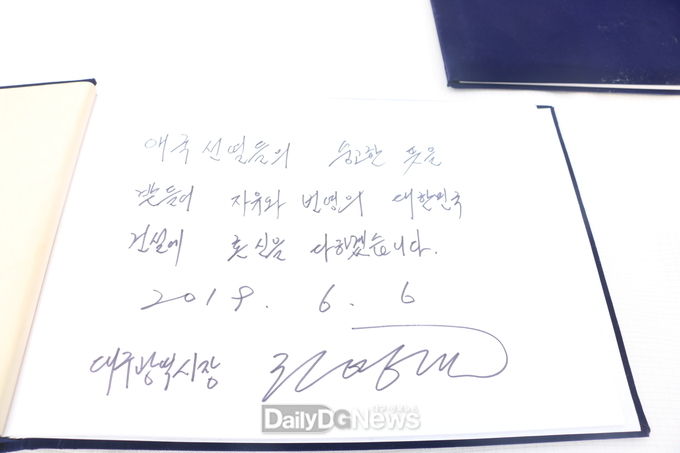 애국 선열들의 숭고한 뜻을
받들어 자유와 번영의 대한민국
건설에 혼신을 다하겠습니다.
2019. 6. 6
대구광역시장
DailyDGNews